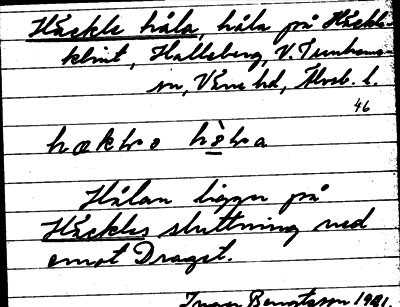 Häckle håla, håla på Häckle-
klint, Halleberg, V. Tunhems
sn, Väne hd, Älvsb. l.
46
Hålan ligger på
Häckles sluttning ned
emot Draget.
Bengtsson 1931.